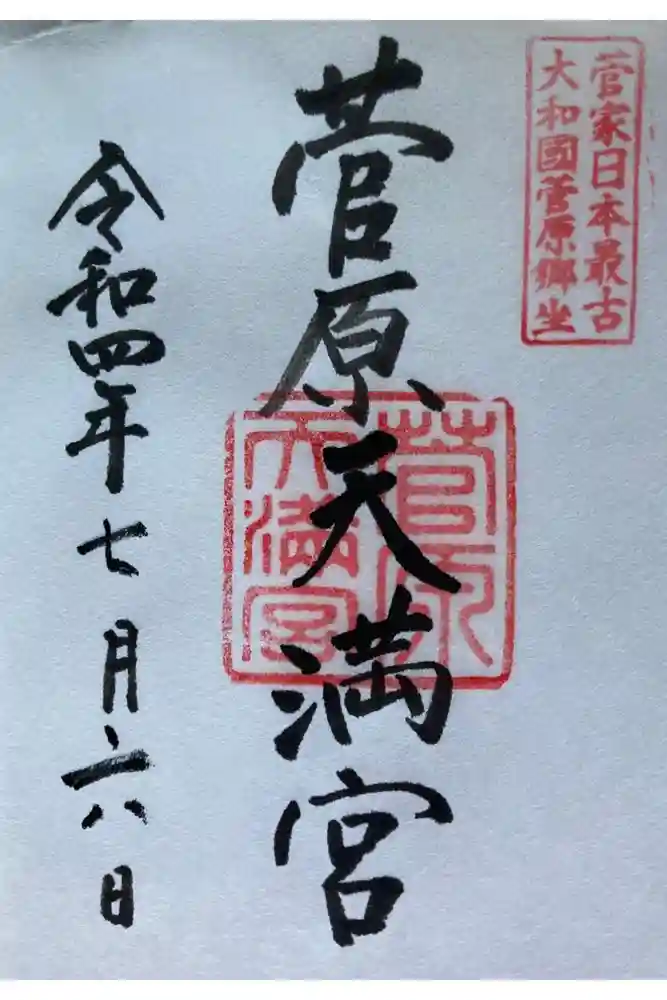 菅家日本最古
大和國菅原郷坐
菅原天満宮
菅原
天満宮
令和四年七月六日